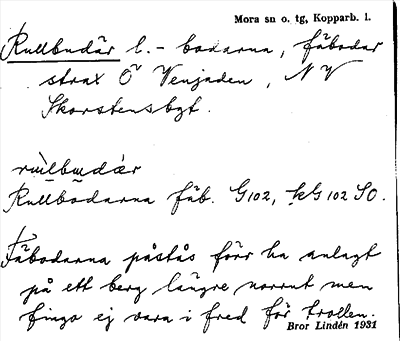 Mora sn o. tg, Kopparb. l.
Rullbudär l. - bodarna, fäbodar
strax O Venjaden, NV
Skorstensbgt.
rullbudær
Rullbodarna fäb. G102, kG 102 SO.
Fäbodarna påstås förr ha anlagt
på ett berg längre norrut men
fingo ej vara i fred för trollen.
Bror Lindén 1931